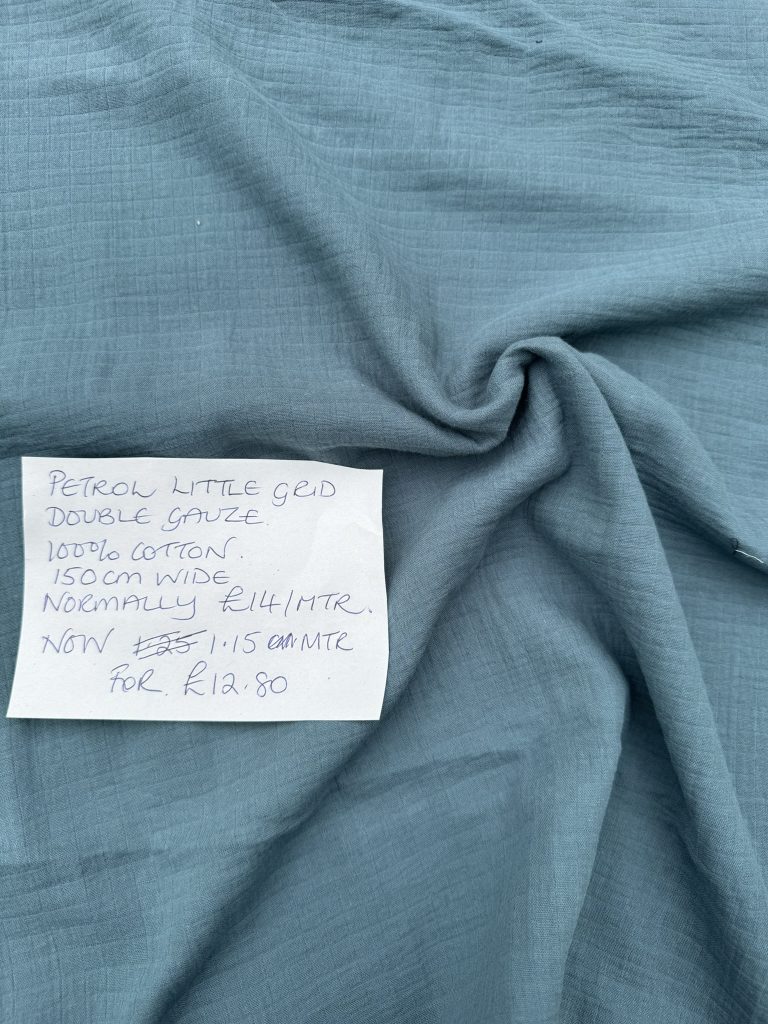 PETROL LITTLE GRID
DOUBLE GAUZE.
100% COTTON.
150cm WIDE
NORMALLY £14/MTR.
NOW 1.15 MTR
FOR £12.80